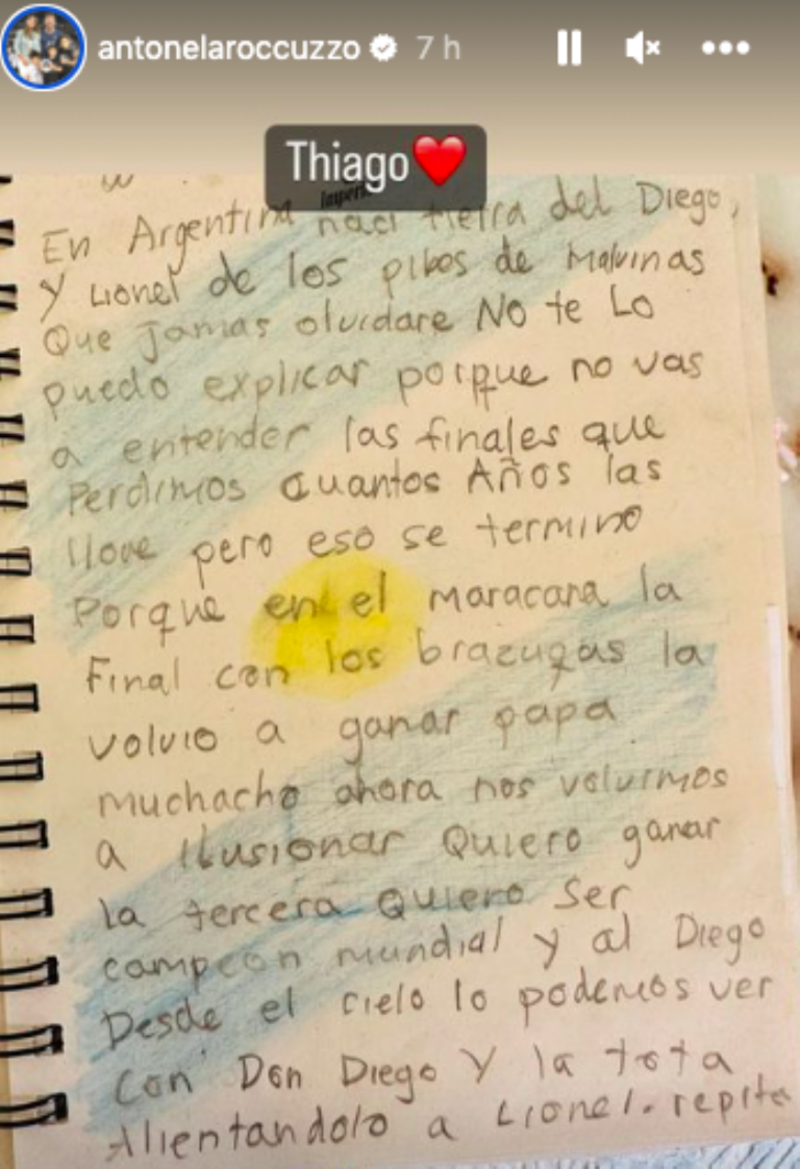 antonelaroccuzzo 7 h
Thiago❤️
En Argentina naci tierra del Diego,
y Lionel de los pibes de Malvinas
Que jamas olvidare No te Lo
puedo explicar porque no vas
a entender las finales que
Perdimos cuantos Años las
llove pero eso se termino
Porque en el maracana la
Final con los brazugas la
volvio a ganar papa
muchacho ahora nos volvimos
a ilusionar Quiero ganar
la tercera Quiero ser
campeon mundial y al Diego
Desde el cielo lo podemos ver
Con Don Diego y la tota
Alientandolo a Lionel. repita